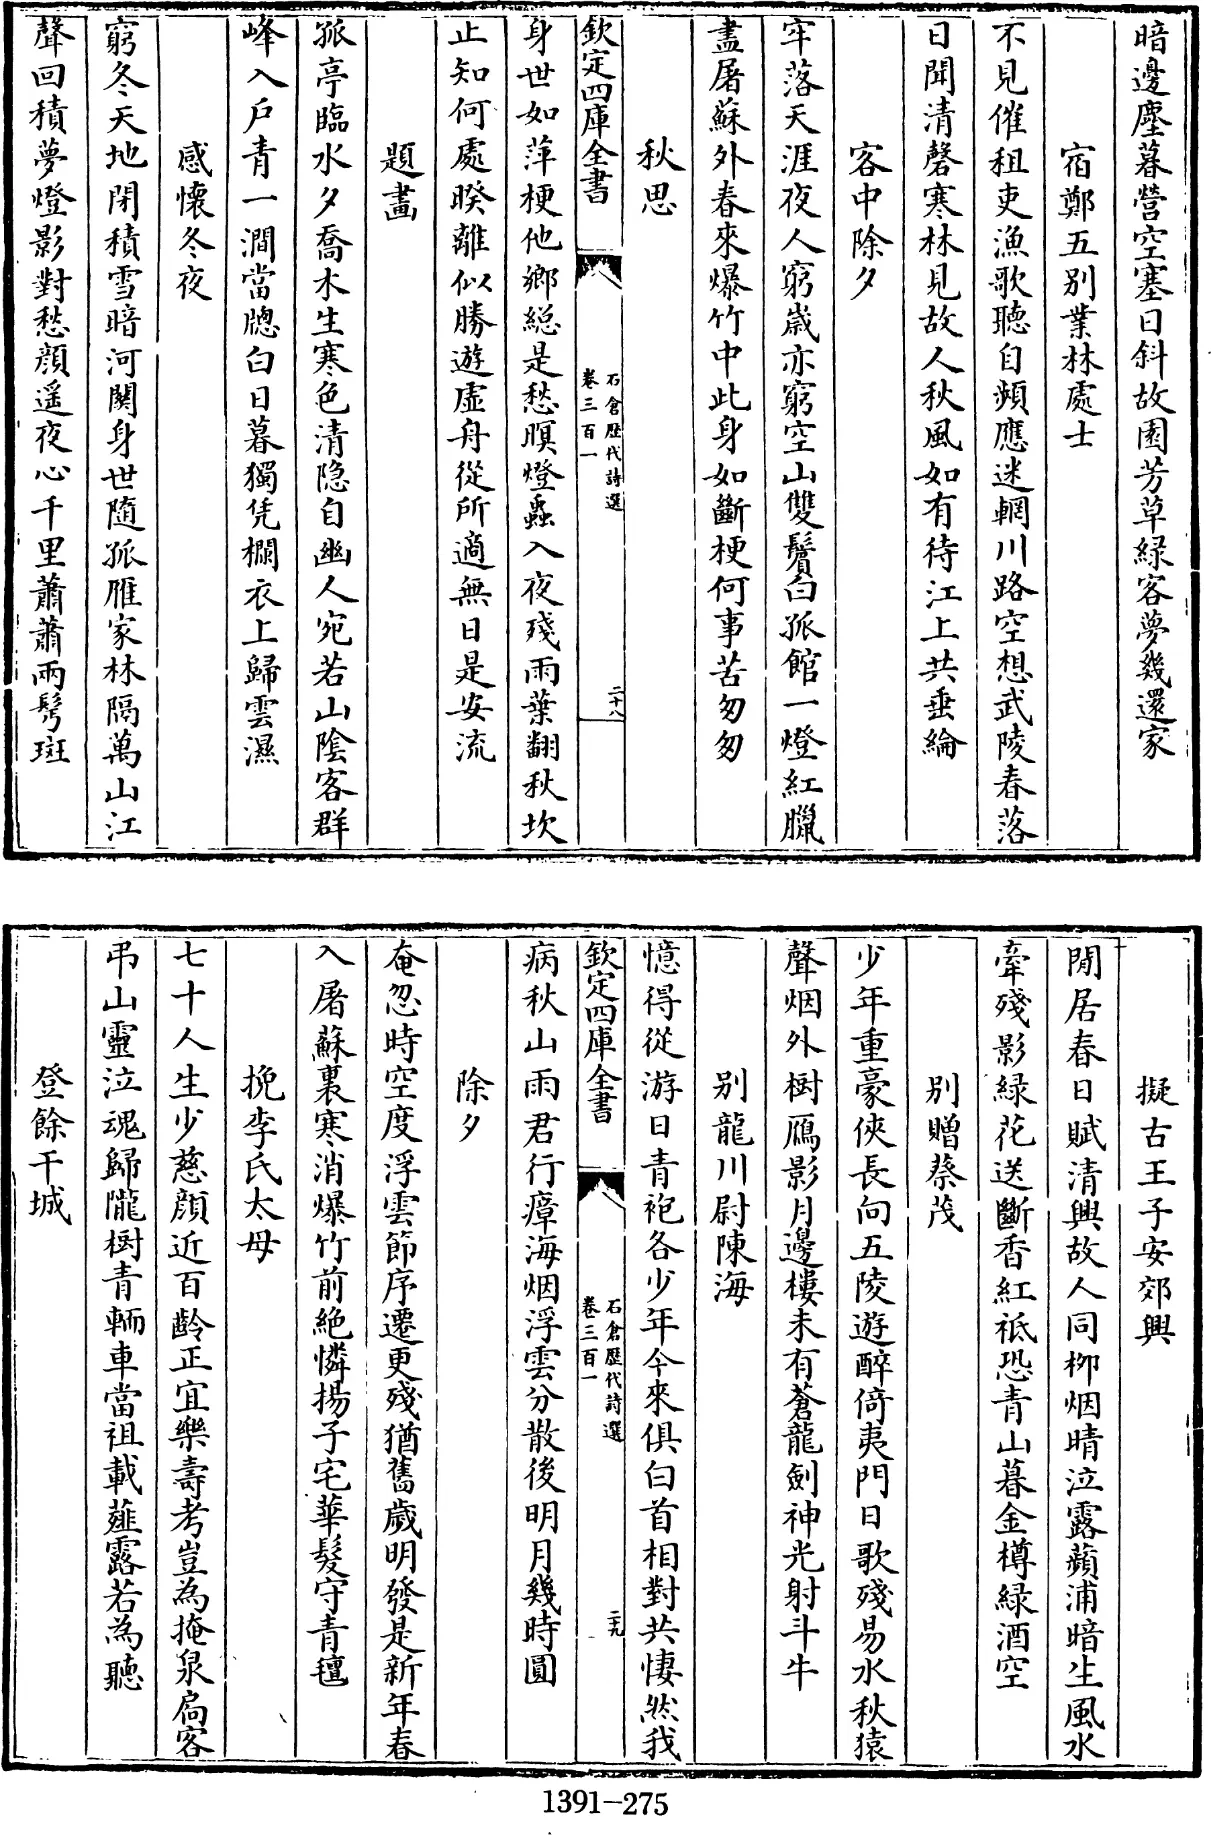 暗邊塵暮營空塞日斜故園芳草緑客夢幾還家
宿鄭五别業林處士
不見催租吏漁歌聽自頻應迷輞川路空想武陵春落
日聞清磬寒林見故人秋風如有待江上共垂綸
客中除夕
牢落天涯夜人窮嵗亦窮空山雙鬢白孤館一燈紅臘
盡屠蘇外春來爆竹中此身如斷梗何事苦匆匆
秋思
欽定四庫全書
石倉歴代詩選
卷三百一
二十八
身世如萍梗他鄉総是愁暝燈蟲入夜殘雨葉翻秋坎
止知何處暌離似勝遊虚舟從所適無日是安流
題畫
孤亭臨水夕喬木生寒色清隐自幽人宛若山隂客群
峰入戶青一澗當牕白日暮獨凭欄衣上歸雲濕
感懷冬夜
窮冬天地閉積雪暗河闗身世隨孤雁家林隔萬山江
聲回積夢燈影對愁顔遥夜心千里蕭蕭兩髩斑
擬古王子安郊興
閒居春日賦清興故人同栁烟晴泣露蘋浦暗生風水
牽殘影緑花送斷香紅祗恐青山暮金樽緑酒空
别贈蔡茂
少年重豪俠長向五陵遊醉倚夷門日歌殘易水秋猿
聲烟外樹鴈影月邊樓未有蒼龍劍神光射斗牛
别龍川尉陳海
憶得從游日青袍各少年今來俱白首相對共悽然我
欽定四庫全書
石倉歴代詩選
卷三百一
二十九
病秋山雨君行瘴海烟浮雲分散後明月幾時圓
除夕
奄忽時空度浮雲節序遷更殘猶舊歲明發是新年春
入屠蘇裏寒消爆竹前絶憐揚子宅華髮守青氊
挽李氏太母
七十人生少慈顔近百齡正宜樂壽考豈為掩泉扄客
弔山靈泣魂歸隴樹青輀車當祖載薤露若為聽
登餘干城
1391-275